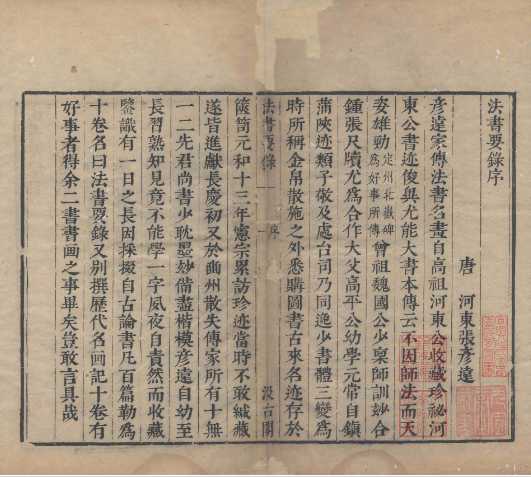 法書要錄序
唐　河東張彥遠
彥遠家傳法書名畫自高祖河東公收藏珍祕河
東公書迹俊異尤能大書本傳云不因師法而天
姿雄勁定州北嶽碑為好事所傳曾祖魏國公少稟師訓妙合
鍾張尺牘尤為合作大父高平公幼學元常自鎮
蒲陝迹類子敬及處台司乃同逸少書體三變為
時所稱金帛散施之外悉購圖書古來名迹存於
篋笥元和十三年憲宗累訪珍迹當時不敢緘藏
遂皆進獻長慶初又於豳州散失傳家所有十無
一二先君尚書少耽墨妙備盡楷模彥遠自幼至
長習熟知見竟不能學一字夙夜自責然而收藏
鑒識有一日之長因採掇自古論書凡百篇勒為
十卷名曰法書要錄又別撰歷代名畫記十卷有
好事者得余二書書畫之事畢矣豈敢言具哉
法書要錄　序　汲古閣